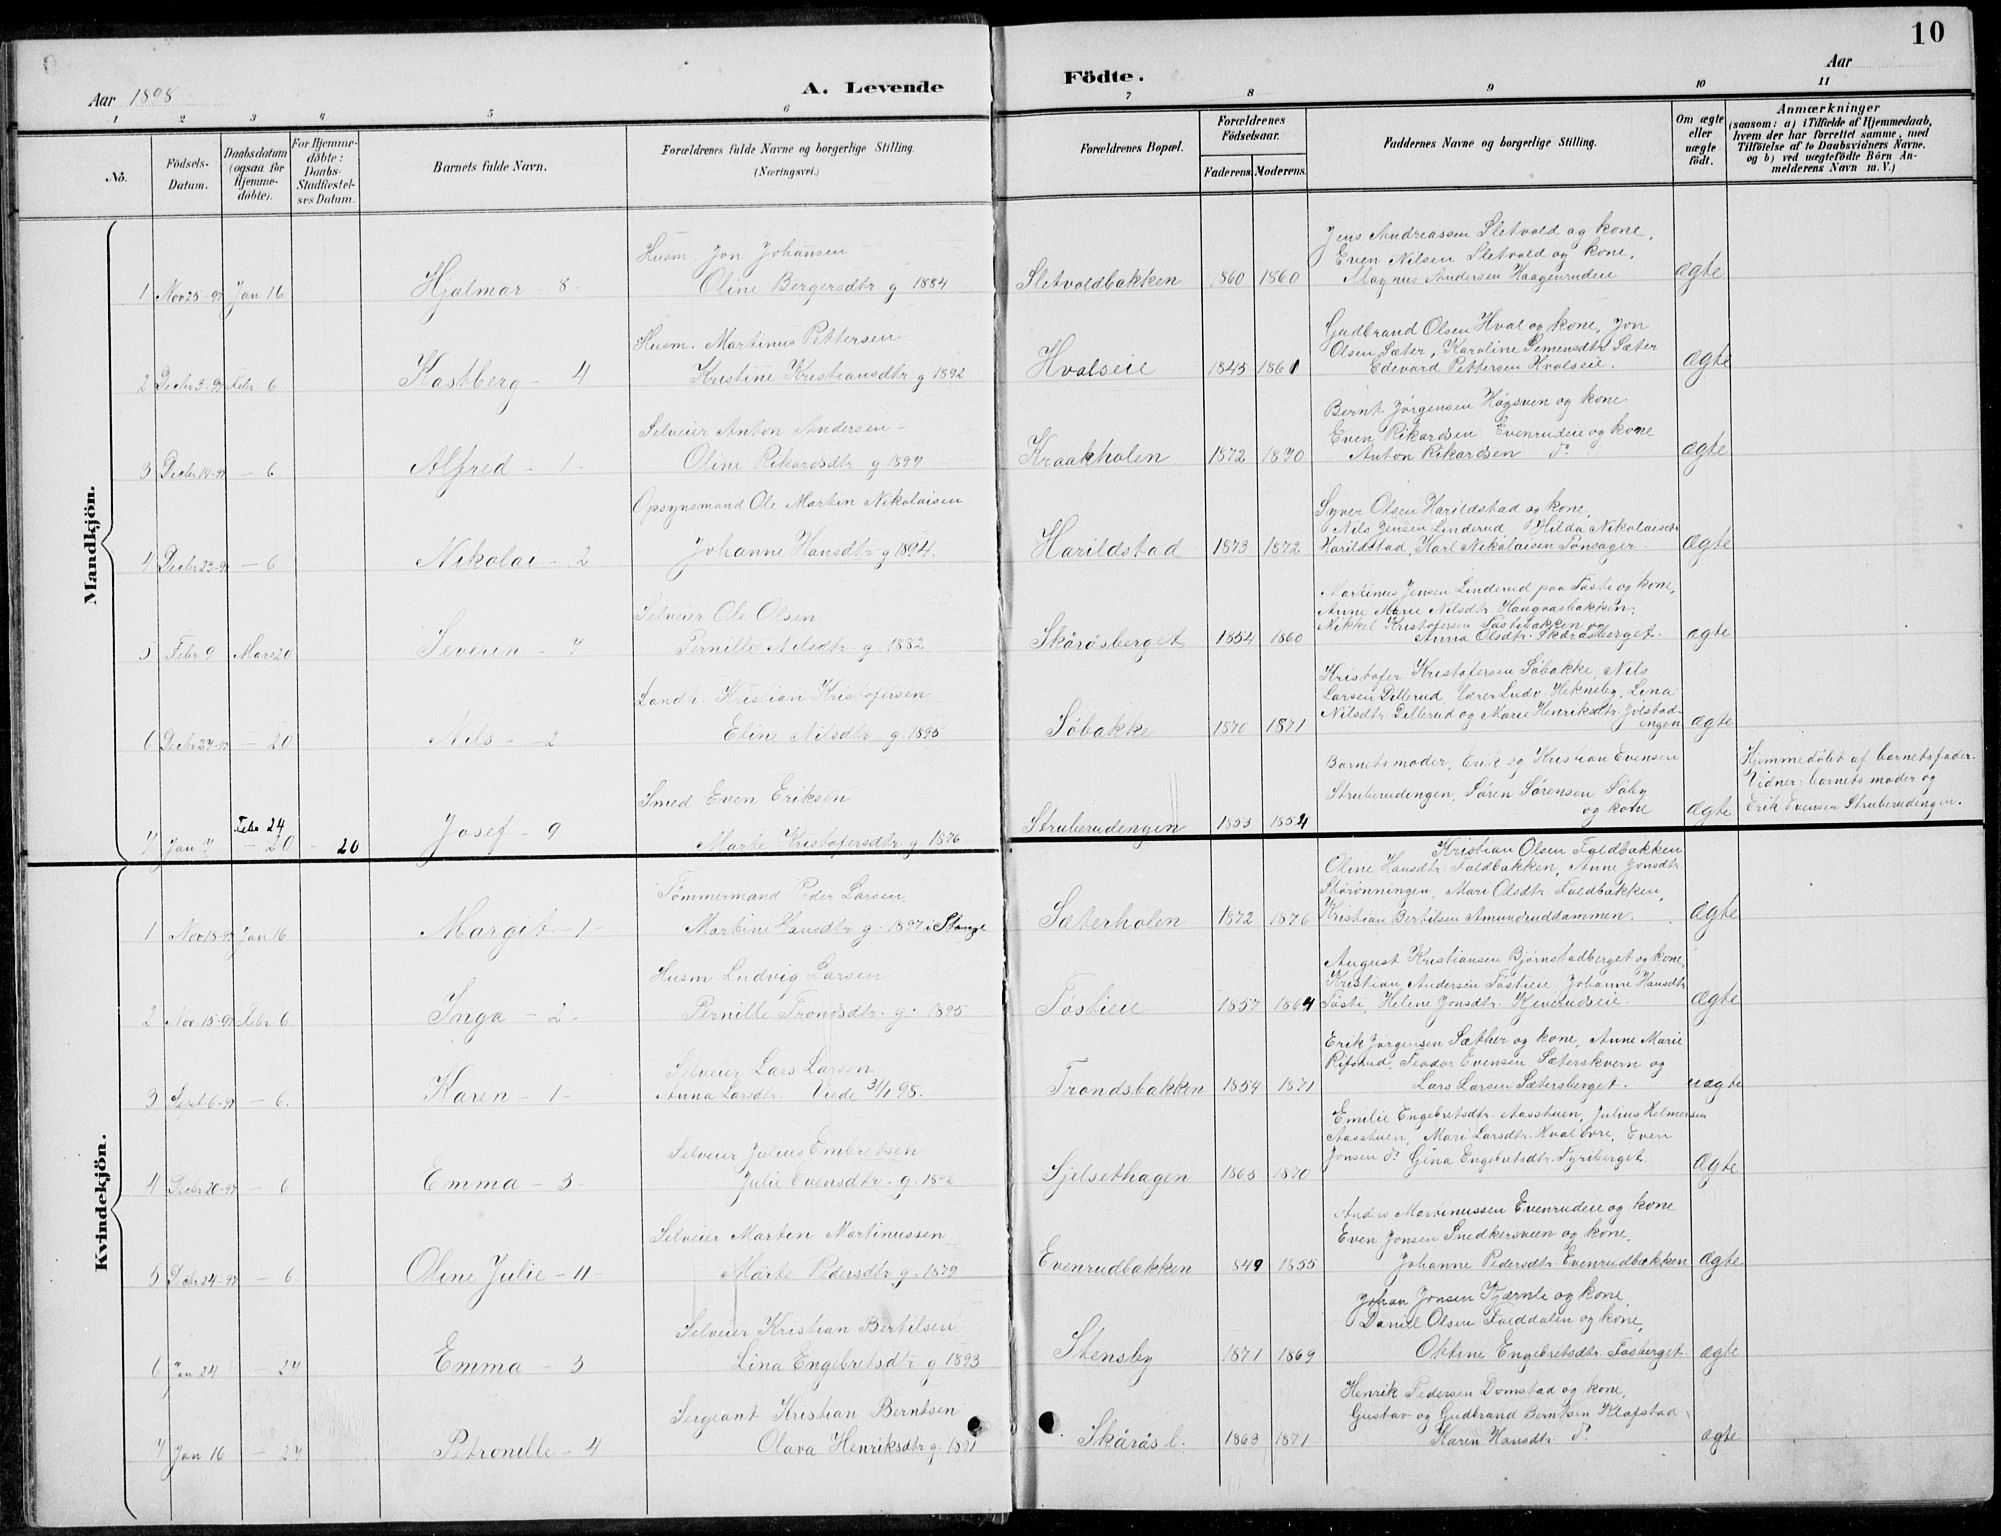 10
Aar 1898
A. Levende Födte.
Aar
1 2 3 4 5 6 7 8 9 10 11
No.
Födsels-Datum.
Daabsdatum (ogsaa for Hjemme-döbte).
For Hjemme-döbte: Daabs-Stadfæstel-ses Datum.
Barnets fulde Navn.
Forældrenes fulde Navne og borgerlige Stilling. (Næringsvei.)
Forældrenes Bopæl.
Forældrenes Födselsaar.
Faderens Moderens
Faddernes Navne og borgerlige Stilling.
Om ægte eller uægte födt.
Anmærkninger
(saasom: a) i Tilfælde af Hjemmedaab, hvem der har forrettet samme, med Tilföielse af to Daabsvidners Navne, og b) ved uægtefödte Börn Anmelderens Navn m. V.)
Mandkjön.
Husm Jon Johansen
1 Nov 25-97 Jan 16 Hjalmar - 8 - Oline Bergersdtr g 1884 Sletvoldbakken 1860 1860
Jens Andreassen Sletvold og kone,
Even Nilsen Sletvold og kone,
Magnus Andersen Haagenrudeie ægte
Husm. Martinus Pettersen
2 Decbr 3-97 Febr 6 Kastberg - 4 Kristine Kristiansdtr g 1892 Hvalseie 1843 1861
Gudbrand Olsen Hval og kone, Jon
Olsen Sæter, Karoline Semensdtr Sæter
Edevard Pettersen Hvalseie. ægte
Selveier Anton Andersen
3 Decbr 14-97 - 6 Alfred - 1 - Oline Rikardsdtr g 1897 Kraakholen 1872 1870
Bernt Jørgensen Høgsven og kone
Even Rikardsen Evenrudeie og kone
Anton Rikardsen ægte
Opsynsmand Ole Martin Nikolaisen
4 Decbr 23-97 - 6. Nikolai - 2 Johanne Hansdtr g 1894. Harildstad 1873 1872
Syver Olsen Harildstad og kone,
Nils Jensen Linderud, Hilda Nikolaisdtr
Harildstad, Karl Nikolaisen Tonsager. ægte
Selveier Ole Olsen
5 Febr 9 Mars 20 Severin - 7 Pernille Nilsdtr g 1882 Skåråsberget 1854 1860
Martinus Jensen Linderud paa Tøste og kone,
Anne Marie Nilsdtr Haugnasbakken,
Nikkel Kristofersen Tøstebakken og
Anna Olsdtr. Skåråsberget. ægte
Landh. Kristian Kristofersen
6 Decbr 27-97 - 20 Nils - 2 Eline Nilsdtr g 1895 Søbakke 1870 1871
Kristofer Kristofersen Søbakke, Nils
Larsen Dillerud, Ludv. Hekneby, Lina
Nilsdtr Dillerud og Marie Henriksdtr. Jolstad-
engen ægte
Smed Even Eriksen
7 Jan 7 Febr 24 - 20 - 20 Josef - 9 Marte Kristofersdtr g 1876 Struberudengen 1853 1854
Barnets moder, Erik og Kristian Evensen
Struberudengen, Søren Sørensen Søby
og kone ægte
Hjemmedøbt af barnets fader.
Vidner: barnets moder og
Erik Evensen Struberudengen.
Kvindekjön.
Tømmermand Peder Larsen,
1 Nov 18-97 Jan 16 Margit - 1 - Martine Hansdtr g. 1897 i Stange Sæterholen 1872 1876
Kristian Olsen Faldbakken
Oline Hansdtr. Faldbakken, Anne Jonsdtr
Storønningen, Mari Olsdtr. Faldbakken,
Kristian Bertilsen Amundruddammen. ægte
Husm Ludvig Larsen
2 Nov. 15-97 Febr 6 Inga - 2 - Pernille Trondsdtr. g. 1895 Tøstieie 1857 1864
August Kristiansen Bjørnstadberget og kone,
Kristian Andersen Tøstieie, Johanne Hansdtr
Tøste, Helene Jonsdtr. Kjverudseie. ægte
Selveier Lars Larsen
3 Sept 6-97 - 6. Karen - 1 - Anna Larsdtr. Viede 31/1 98. Trondsbakken 1854 1871
Erik Jørgensen Sæther og kone, Anne Marie
Rifstad, Teodor Evensen Sæterskvern og
Lars Larsen Sætersberget. uægte
Selveier Julius Embretsen
4 Decbr 20-97 - 6 Emma - 3 - Julie Evensdtr. g. Sjelsethagen 1865 1870
Emilie Engebretsdtr. Aasstuen, Julius Helmersen
Aasstuen, Mari Larsdtr. Hval Øvre, Even
Jonsen Gina Engebretsdtr. Fyriberget. ægte
Selveier Martin Martinussen
5 Dcbr 24-97 - 6 Oline Julie - 11 - Marte Pedersdtr g. 1879 Evenrudbakken 1849 1855
Martinussen Evenrudeie og kone
Even Jonsen Snedkersveen og kone,
Johanne Pedersdtr. Evenrudbakken ægte
Selveier Kristian Bertilsen
6 Jan 24 - 27 Emma - 3 Lina Engebretsdtr g 1893 Stensby 1871 1869
Johan Jonsen Kjærnli og kone
Daniel Olsen Falddalen og kone,
Oktine Engebretsdtr. Fosberget. ægte
Sergeant Kristian Berntsen
7 Jan 16 - 27 Petronille - 4 Olava Henriksdtr g. 1891 Skårås l. 1863 1871
Henrik Pedersen Domstad og kone,
Gustav og Gudbrand Berntsen Klofstad
Karen Hansdtr. ægte